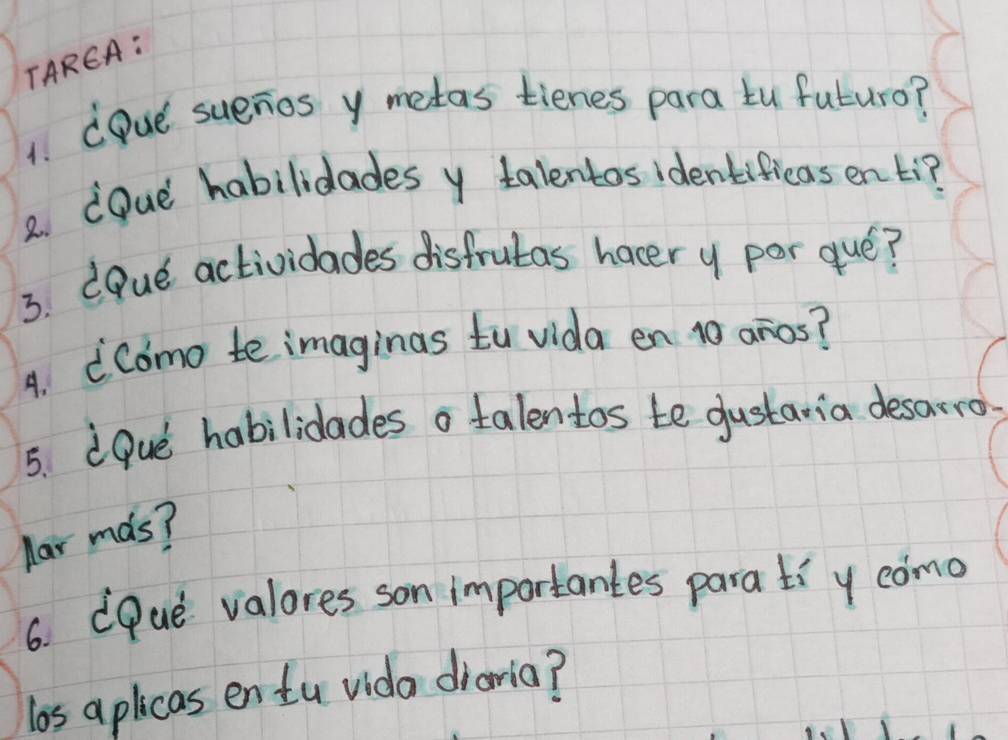 TAREA:
1. ¿Qué sueños y metas tienes para tu futuro?
2. ¿Qué habilidades y talentos identificas en ti?
3. ¿Qué actividades disfrutas hacer y por qué?
4. ¿Cómo te imaginas tu vida en 10 años?
5. ¿Qué habilidades o talentos te gustaría desarro-
llar más?
6. ¿Qué valores son importantes para tí y cómo
los aplicas en tu vida diaria?